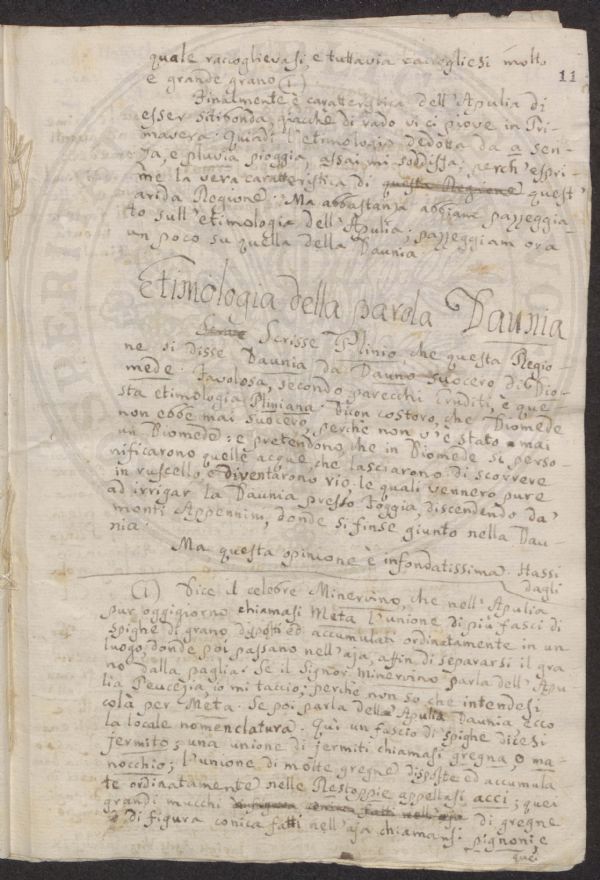 11
quale raccoglievasi, e tuttavia raccogliesi molto
e grande grano (1)
Finalmente è caratteristica dell'Apulia di
esser sitibonda, giacche di rado vi ci piove in Pri-
mavera. Quindi l'etimologia dedotta da a sen-
za, e pluvia pioggia, assai mi soddisfa; perch'espri-
me la vera caratteristica di questa Regione quest'
arida Regione. Ma abbastanza abbiam passeggia-
to sull'etimologia dell'Apulia; passeggiam ora
un poco su quella della Daunia.
Etimologia della parola Daunia
Scrisse Plinio che questa Regio-
ne si disse Daunia da Dauno suocero di Dio-
mede. Favolosa, secondo parecchi Eruditi, è que-
sta etimologia Pliniana. Dicon costoro, che Diomede
non ebbe mai suocero, perchè non v'è stato mai
un Diomede: e pretendono, che in Diomede si perso-
nificarono quelle acque, che lasciarono di scorrere
in ruscello, e diventarono rio, le quali vennero pure
ad irrigar la Daunia presso Foggia, discendendo da'
monti Appennini, donde si finse giunto nella Dau-
nia.
Ma questa opinione è infondatissima. Hassi
dagli
(1) Dice il celebre Minervino, che nell'Apulia
pur oggigiorno chiamasi Meta l'unione di più fasci di
spighe di grano, disposti ed accumulati ordinatamente in un
luogo, donde poi passano nell'aja, affin di separarsi il gra-
no dalla paglia. Se il Signor Minervino parla dell'Apu-
lia Peucezia io mi taccio; perchè non so che intendesi
colà per Meta. Se poi parla dell'Apulia Daunia ecco
la locale nomenclatura. Quì un fascio di spighe dicesi
jermito; una unione di jermiti chiamasi gregna, o ma-
nocchio; l'unione di molte gregne disposte ed accumula-
te ordinatamente nelle Restoppie appellasi acci; quei
grandi mucchi di figura conica fatti nell'aja di gregne
e di figura conica fatti nell'aja chiamansi pignoni, e
quei